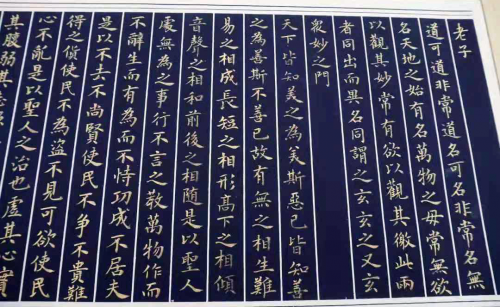 老子
道可道非常道名可名非常名無
名天地之始有名萬物之母常無欲
以觀其妙常有欲以觀其徼此兩
者同出而異名同謂之玄玄之又玄
眾妙之門
天下皆知美之為美斯惡已皆知善
之為善斯不善已故有無之相生難
易之相成長短之相形高下之相傾
音聲之相和前後之相隨是以聖人
處無為之事行不言之教萬物作而
不辭生而有為而不恃功成不居夫
是以不去不尚賢使民不爭不貴難
得之貨使民不為盜不見可欲使民
心不亂是以聖人之治也虛其心實
其腹弱其志